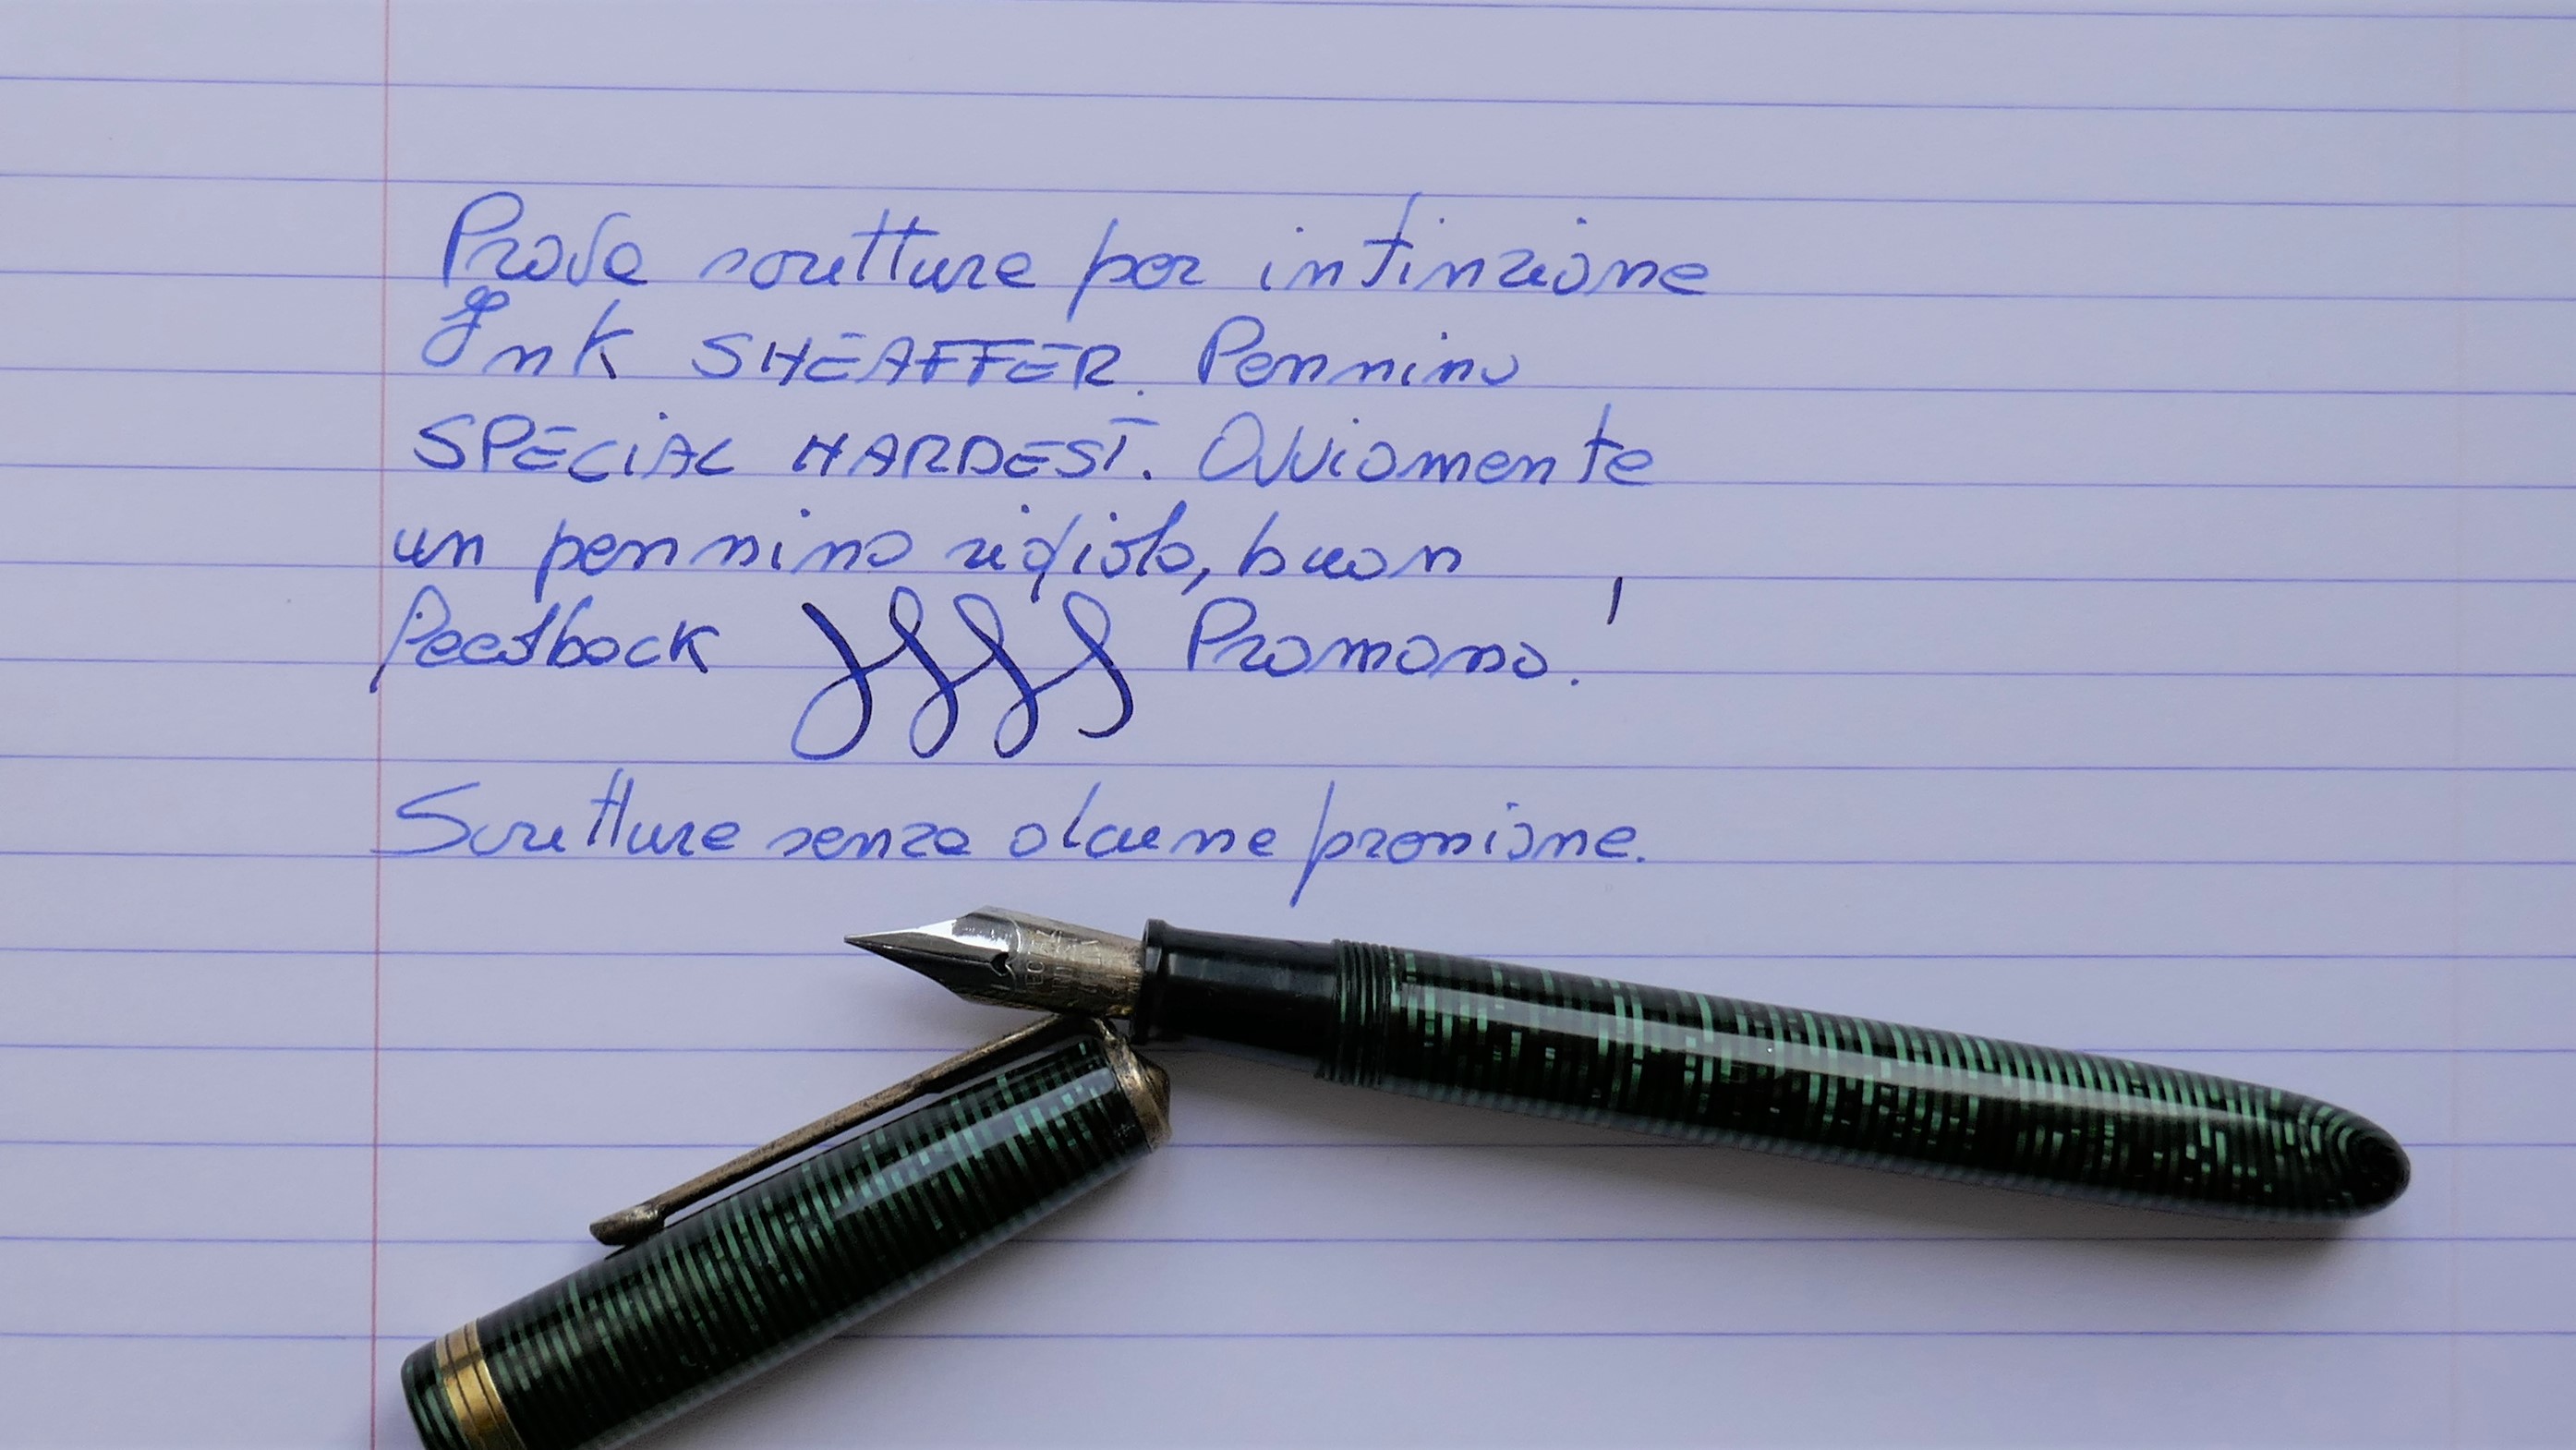 Prova scrittura per intinzione
Ink SHEAFFER. Pennino
SPECIAL HARDEST. Ovviamente
un pennino rigido, buon
feedback Promosso!
Scrittura senza alcuna pressione.